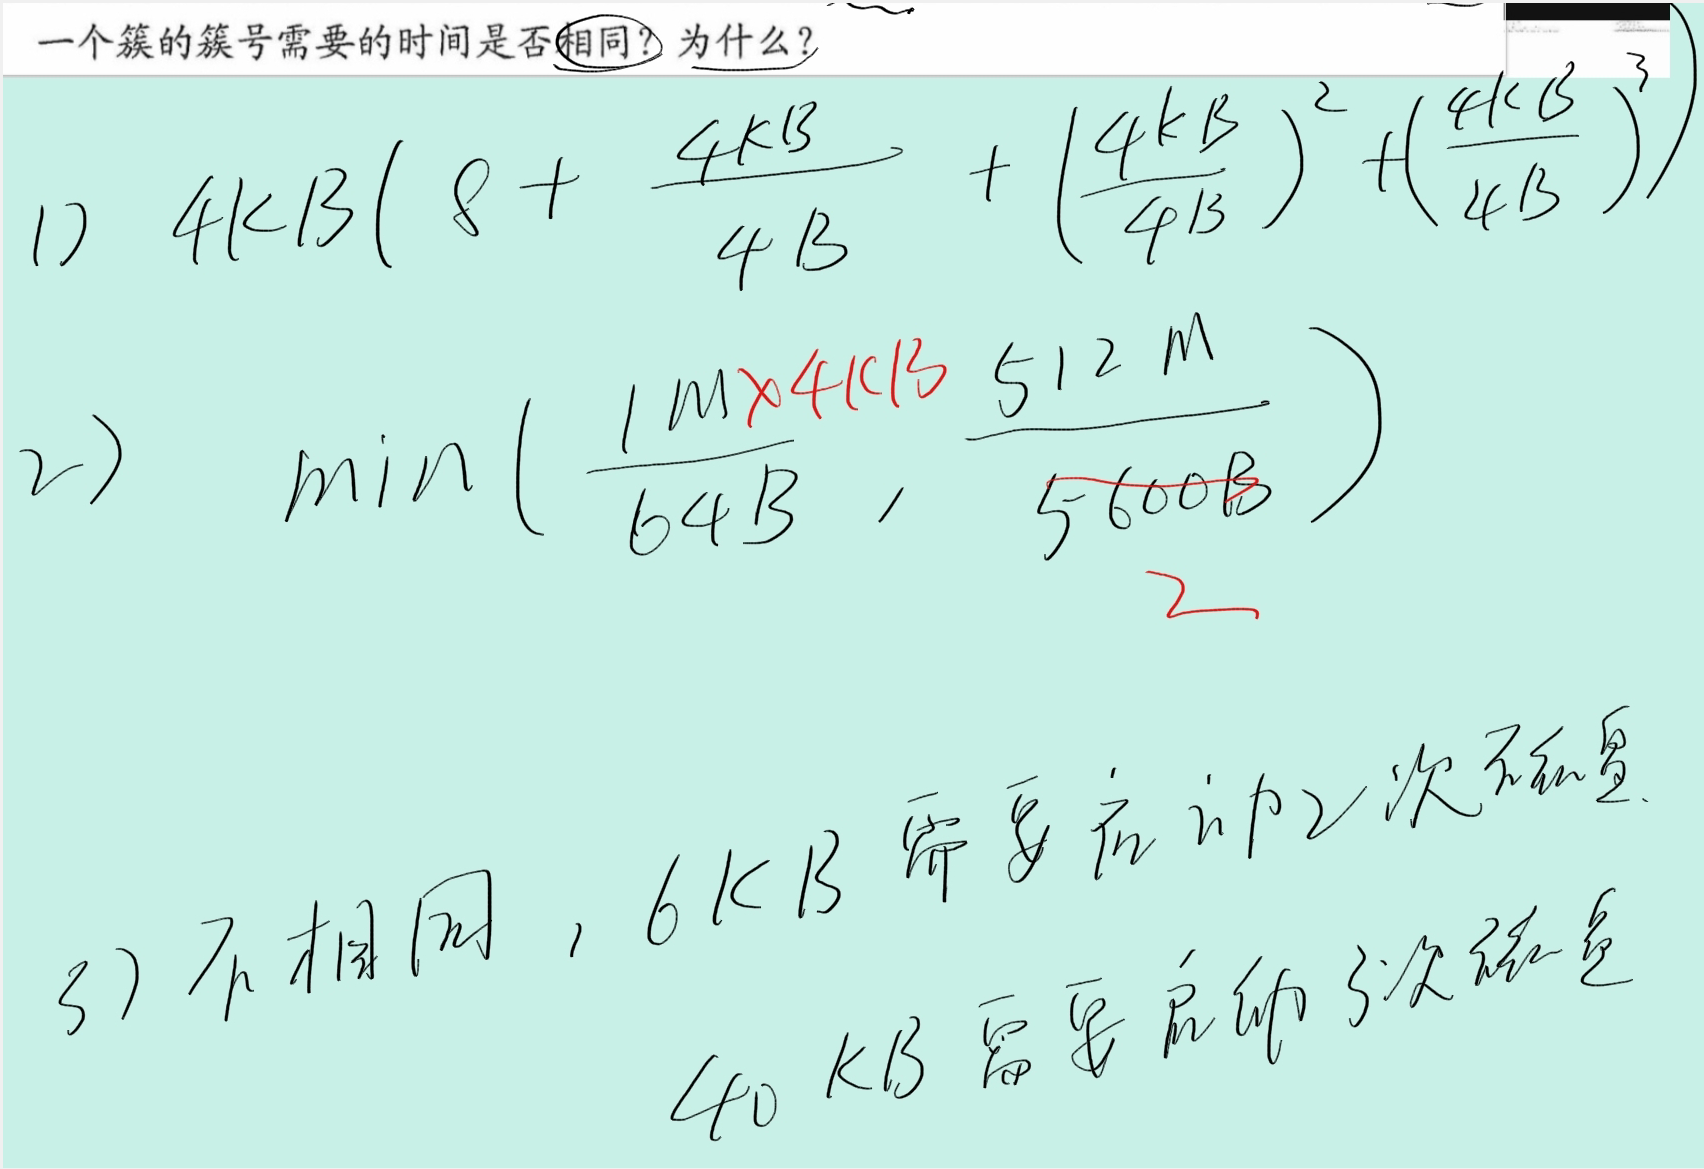 一个簇的簇号需要的时间是否相同？为什么？
1) 4KB(8 + 4KB/4B + (4KB/4B)^2 + (4KB/4B)^3)
2) min(1M×4KB/64B, 512M/5600B)
2
3) 不相同, 6KB需要启动2次磁盘
40KB需要启动3次磁盘